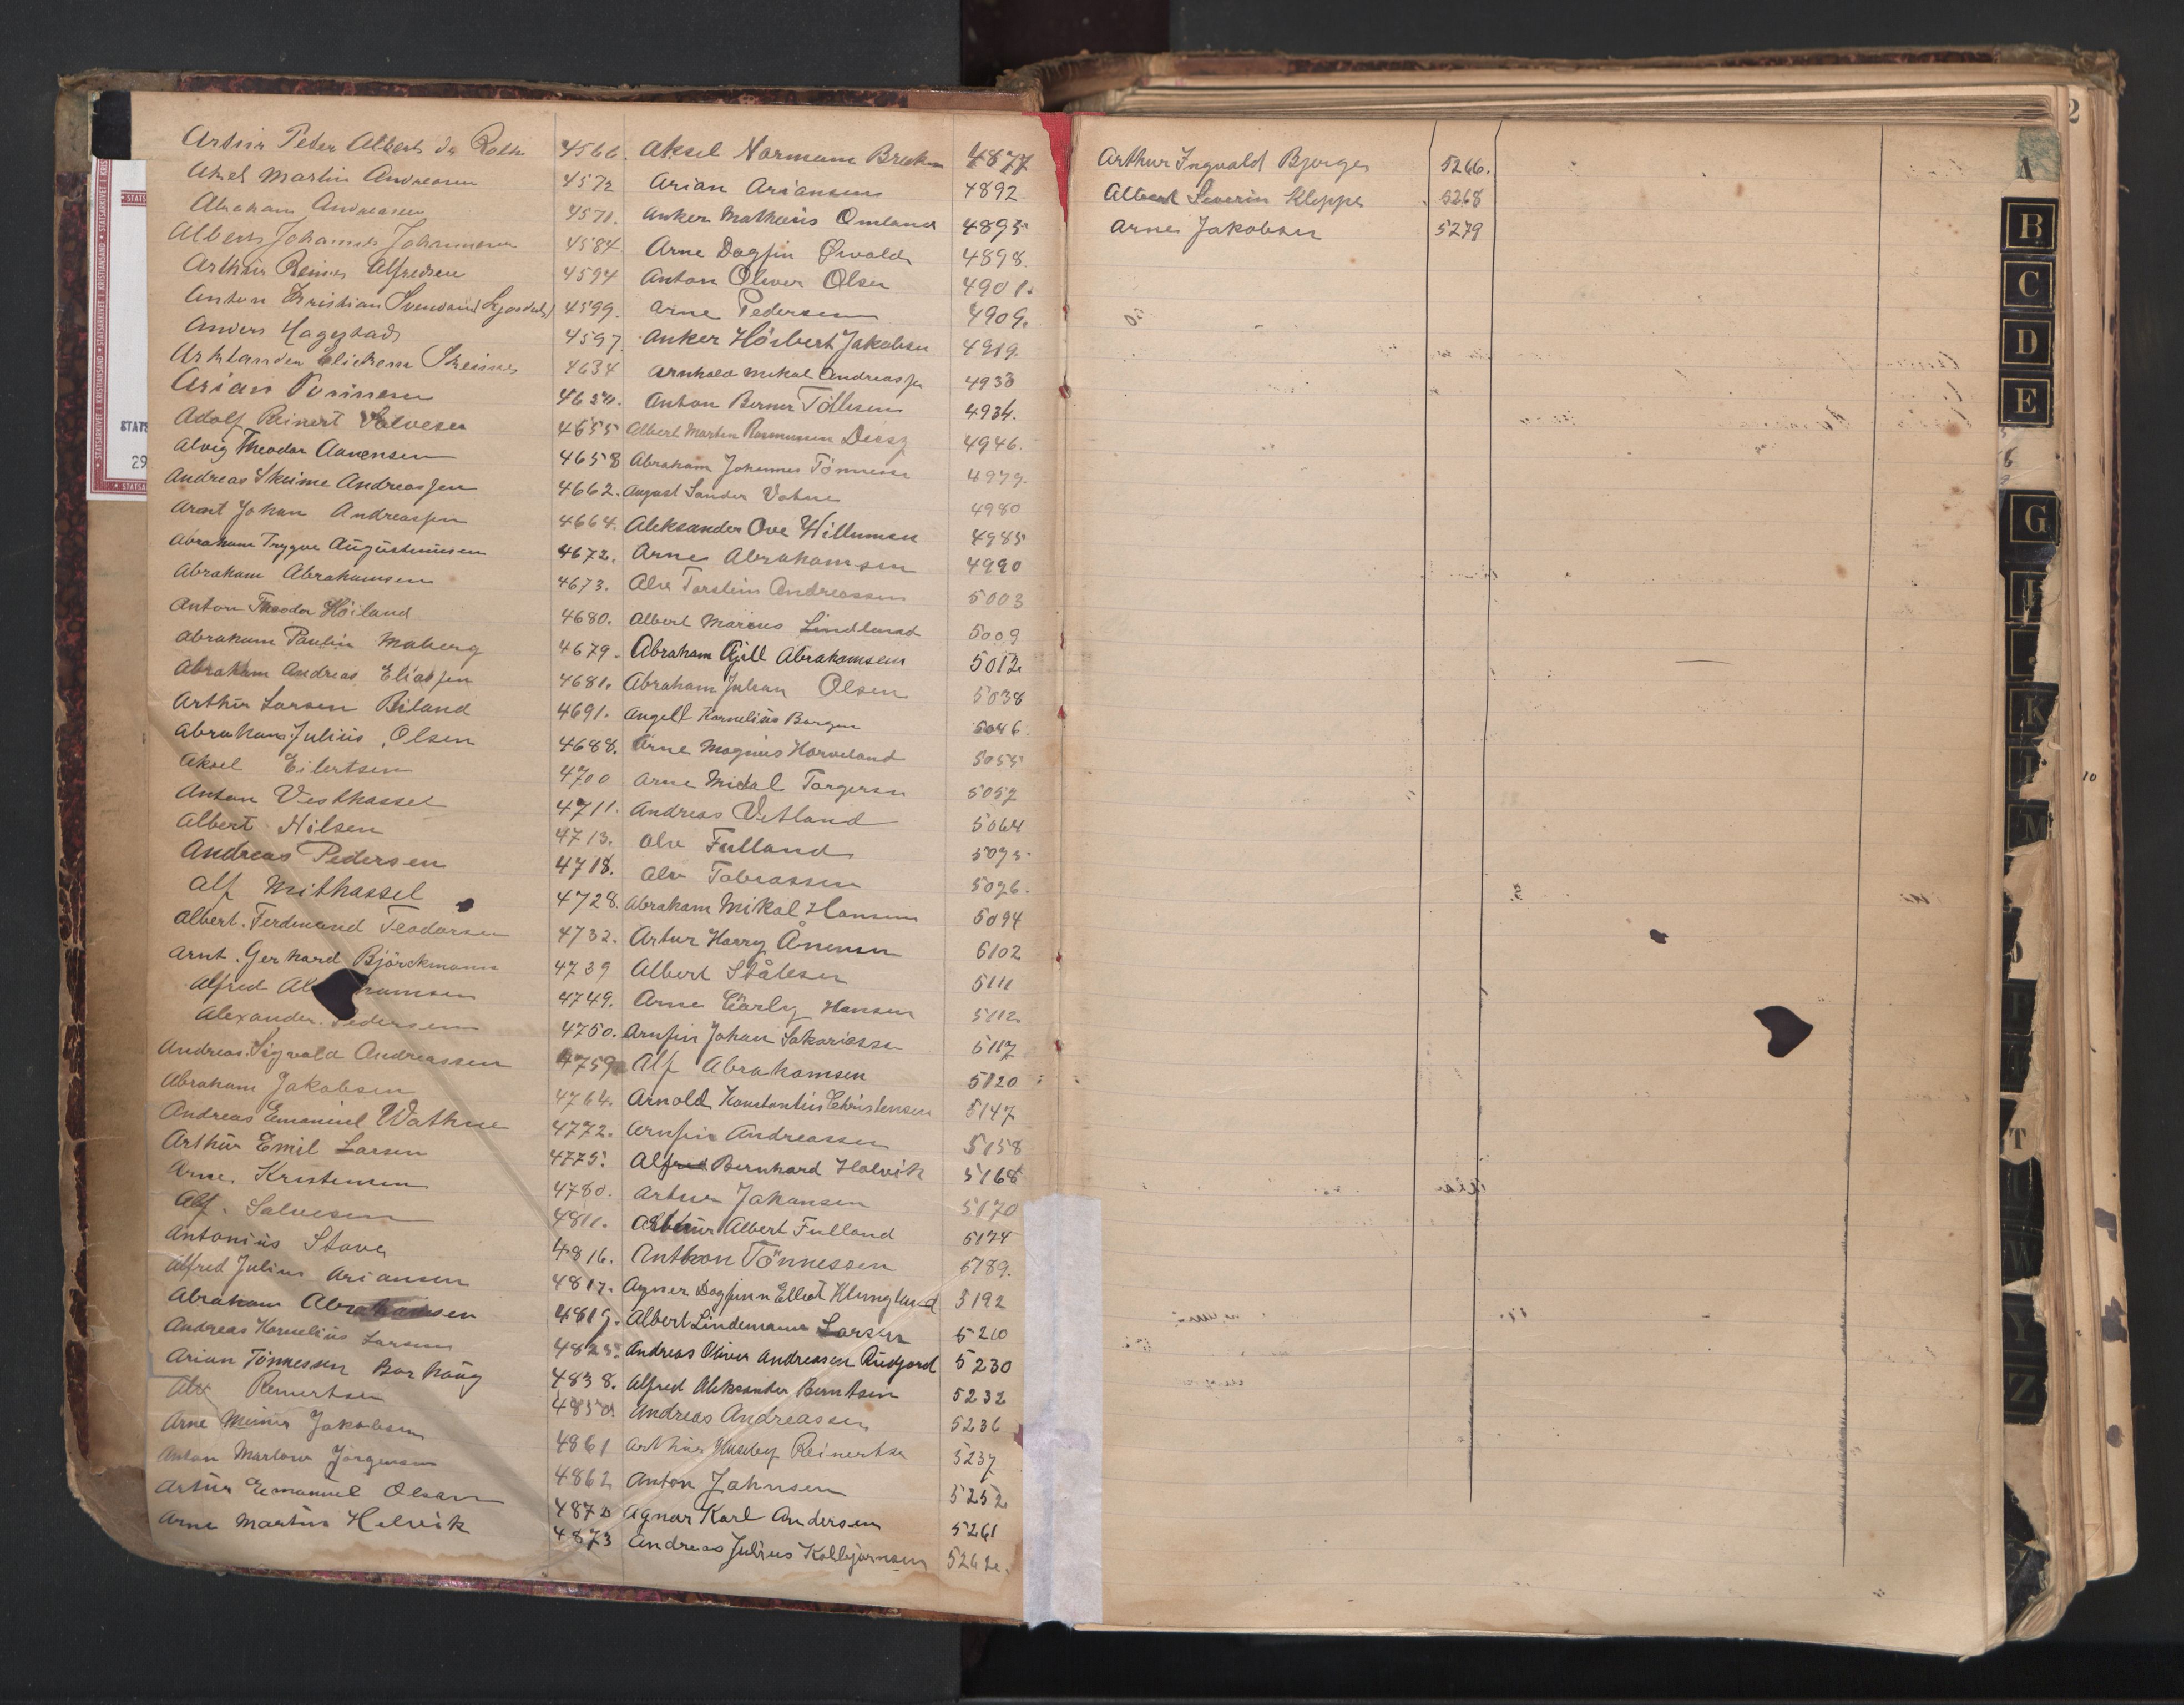 Arthur Peter Alberts de Rose 4566.
Aksel Martin Andreasen 4572
Abraham Andreasen 4571.
Alberts Johannes Johannesen 4584.
Arthur Reimer Alfredsen 4594
Anton Kristian Svendsen 4599.
Anders Hagestad 4597.
Skeime 4634
Arian 4654.
Adolf Reinert Salvesen 4655
Alvig Theodor Aanensen 4658
Andreas Skeime Andreassen 4662.
Arent Johan Andreassen 4664.
Abraham Trygve Augustinusen 4672.
Abraham Abrahamsen 4673.
Anton Theodor Höiland 4680.
Abraham Paulin Maberg 4679.
Abraham Andreas Eliassen 4681.
Arthur Larsen Biland 4691.
Abraham Julius Olsen 4688.
Aksel Eilertsen 4700
Anton Vesthassel 4711.
Albert Nilsen 4713.
Andreas Pedersen 4718.
Alf Mithassel 4728.
Albert. Ferdinand Teodorsen 4732.
Arnt. Gerhard Björckmann 4739
Alfred 4749.
Alexander. Pedersen 4750.
Andreas. Sigvald Andreassen 4759
Abraham Jakobsen 4764.
Andreas Emanuel Wathne 4772.
Arthur Emil Larsen 4775.
Arne Kristensen 4780.
Alf. Salvesen 4811.
Antonius Stave 4816.
Alfred Julius Ariansen 4817.
Abraham Abrahamsen 4819.
Andreas Kornelius Larsen 4825.
Arian Tönnessen Borhaug 4838.
Alv Reinertsen
Arne Meiner Jakobsen 4861
Anton Marlow Jørgensen 4862
Artur Emanuel Olsen 4870
Arne Martin Helvik 4873
Aksel Normann Brekne 4877
Arian Ariansen 4892
Anker Matheus Omland 4895
Arne Dagfin Øvald 4898.
Anton Oliver Olsen 4901.
Arne Pedersen 4909.
Anker Hörbert Jakobsen 4919.
Arnhold Mikal Andreassen 4933
Anton Berner Töllesen 4934.
Albert Martin Rasmussen Diesz 4946.
Abraham Johannes Tönnesen 4979.
August Sander Vatne 4980
Aleksander Ove Willumsen 4985
Arne Abrahamsen 4990
Alv Torstein Andreassen 5003
Albert Marius Lindland 5009
Abraham Kjell Abrahamsen 5012
Abraham Julian Olsen 5038
Angell Kornelius Borgen 5046.
Arne Magnus Harveland 5055
Arne Mikal Torgersen 5057
Andreas Vetland 5064
Alv Fulland 5075
Alv Tobiassen 5076.
Abraham Mikal Hansen 5094
Artur Harry Ånensen 5102
Albert Stålesen 5111
Arne Carly Hansen 5112
Arnfin Johan Sakariassen 5117
Alf Abrahamsen 5120
Arnold Konstantin Christensen 5147
Arnfin Andreassen 5158
Alfred Bernhard Halvik 5168
Artur Johansen 5170
Arthur Albert Fulland 5174
Anthon Tönnessen 5189.
Agner Dagfinn Elliot Klungland 5192
Albert Lindemann Larsen 5210
Andreas Oliver Andreasen Rudjord 5230
Alfred Aleksander Berntsen 5232
Andreas Andreassen 5236
Arthur Huseby Reinertsen 5237
Anton Johnsen 5252
Agnar Karl Andersen 5261
Andreas Julius Kolbjørnsen 5262.
Arthur Ingvald Bjorges 5266.
Albert Severin Kleppe 5268
Arne Jakobsen 5279
A
B
C
D
E
G
K
M
T
W
Y
Z